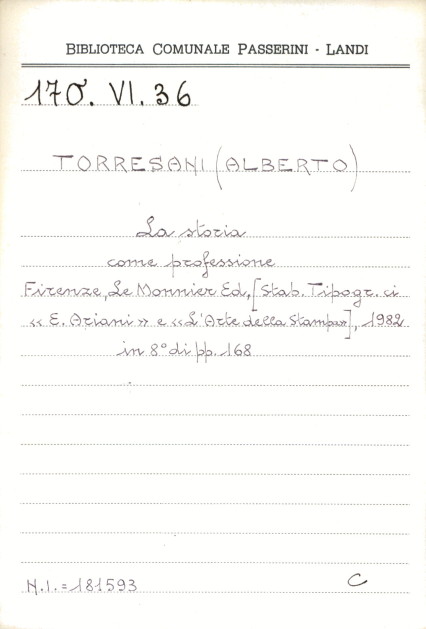 BIBLIOTECA COMUNALE PASSERINI - LANDI
170. VI. 36
TORRESANI (ALBERTO)
La storia
come professione
Firenze, Le Monnier Ed, [Stab. Tipogr. ci
« E. Ariani » e «L'Arte della Stampa»], 1982
in 8° di pp. 168
N.I. = 181593
C